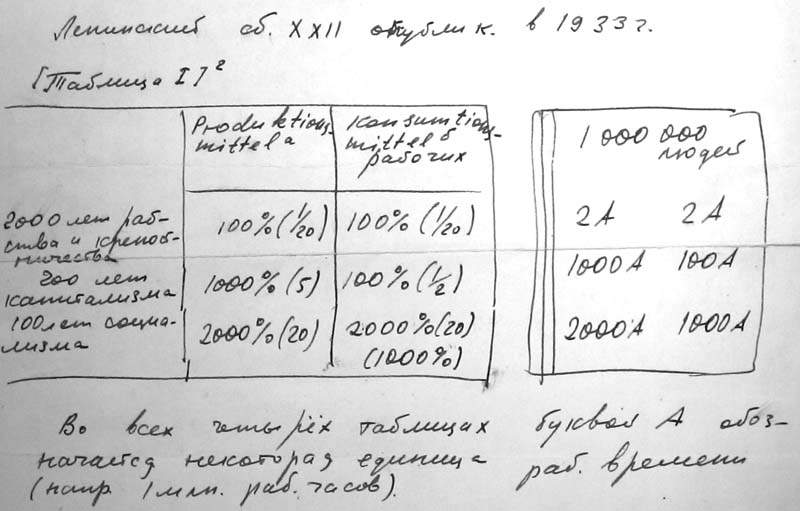 Ленинский сб. XXII опублик. в 1933 г.
[Таблица I]²
Produktions- mittel a
Konsumtions- mittel б рабочих
1 000 000 людей
2000 лет раб-
ства и крепос-
ничества
100% (1/20) 100% (1/20) 2А 2А
200 лет
капитализма
1000% (5) 100% (1/2) 1000А 100А
100 лет социа-
лизма
2000% (20) 2000% (20) 2000А 1000А
(1000%)
Во всех четырёх таблицах буквой А обоз-
начается некоторая единица раб. времени
(напр. 1 млн. раб. часов).